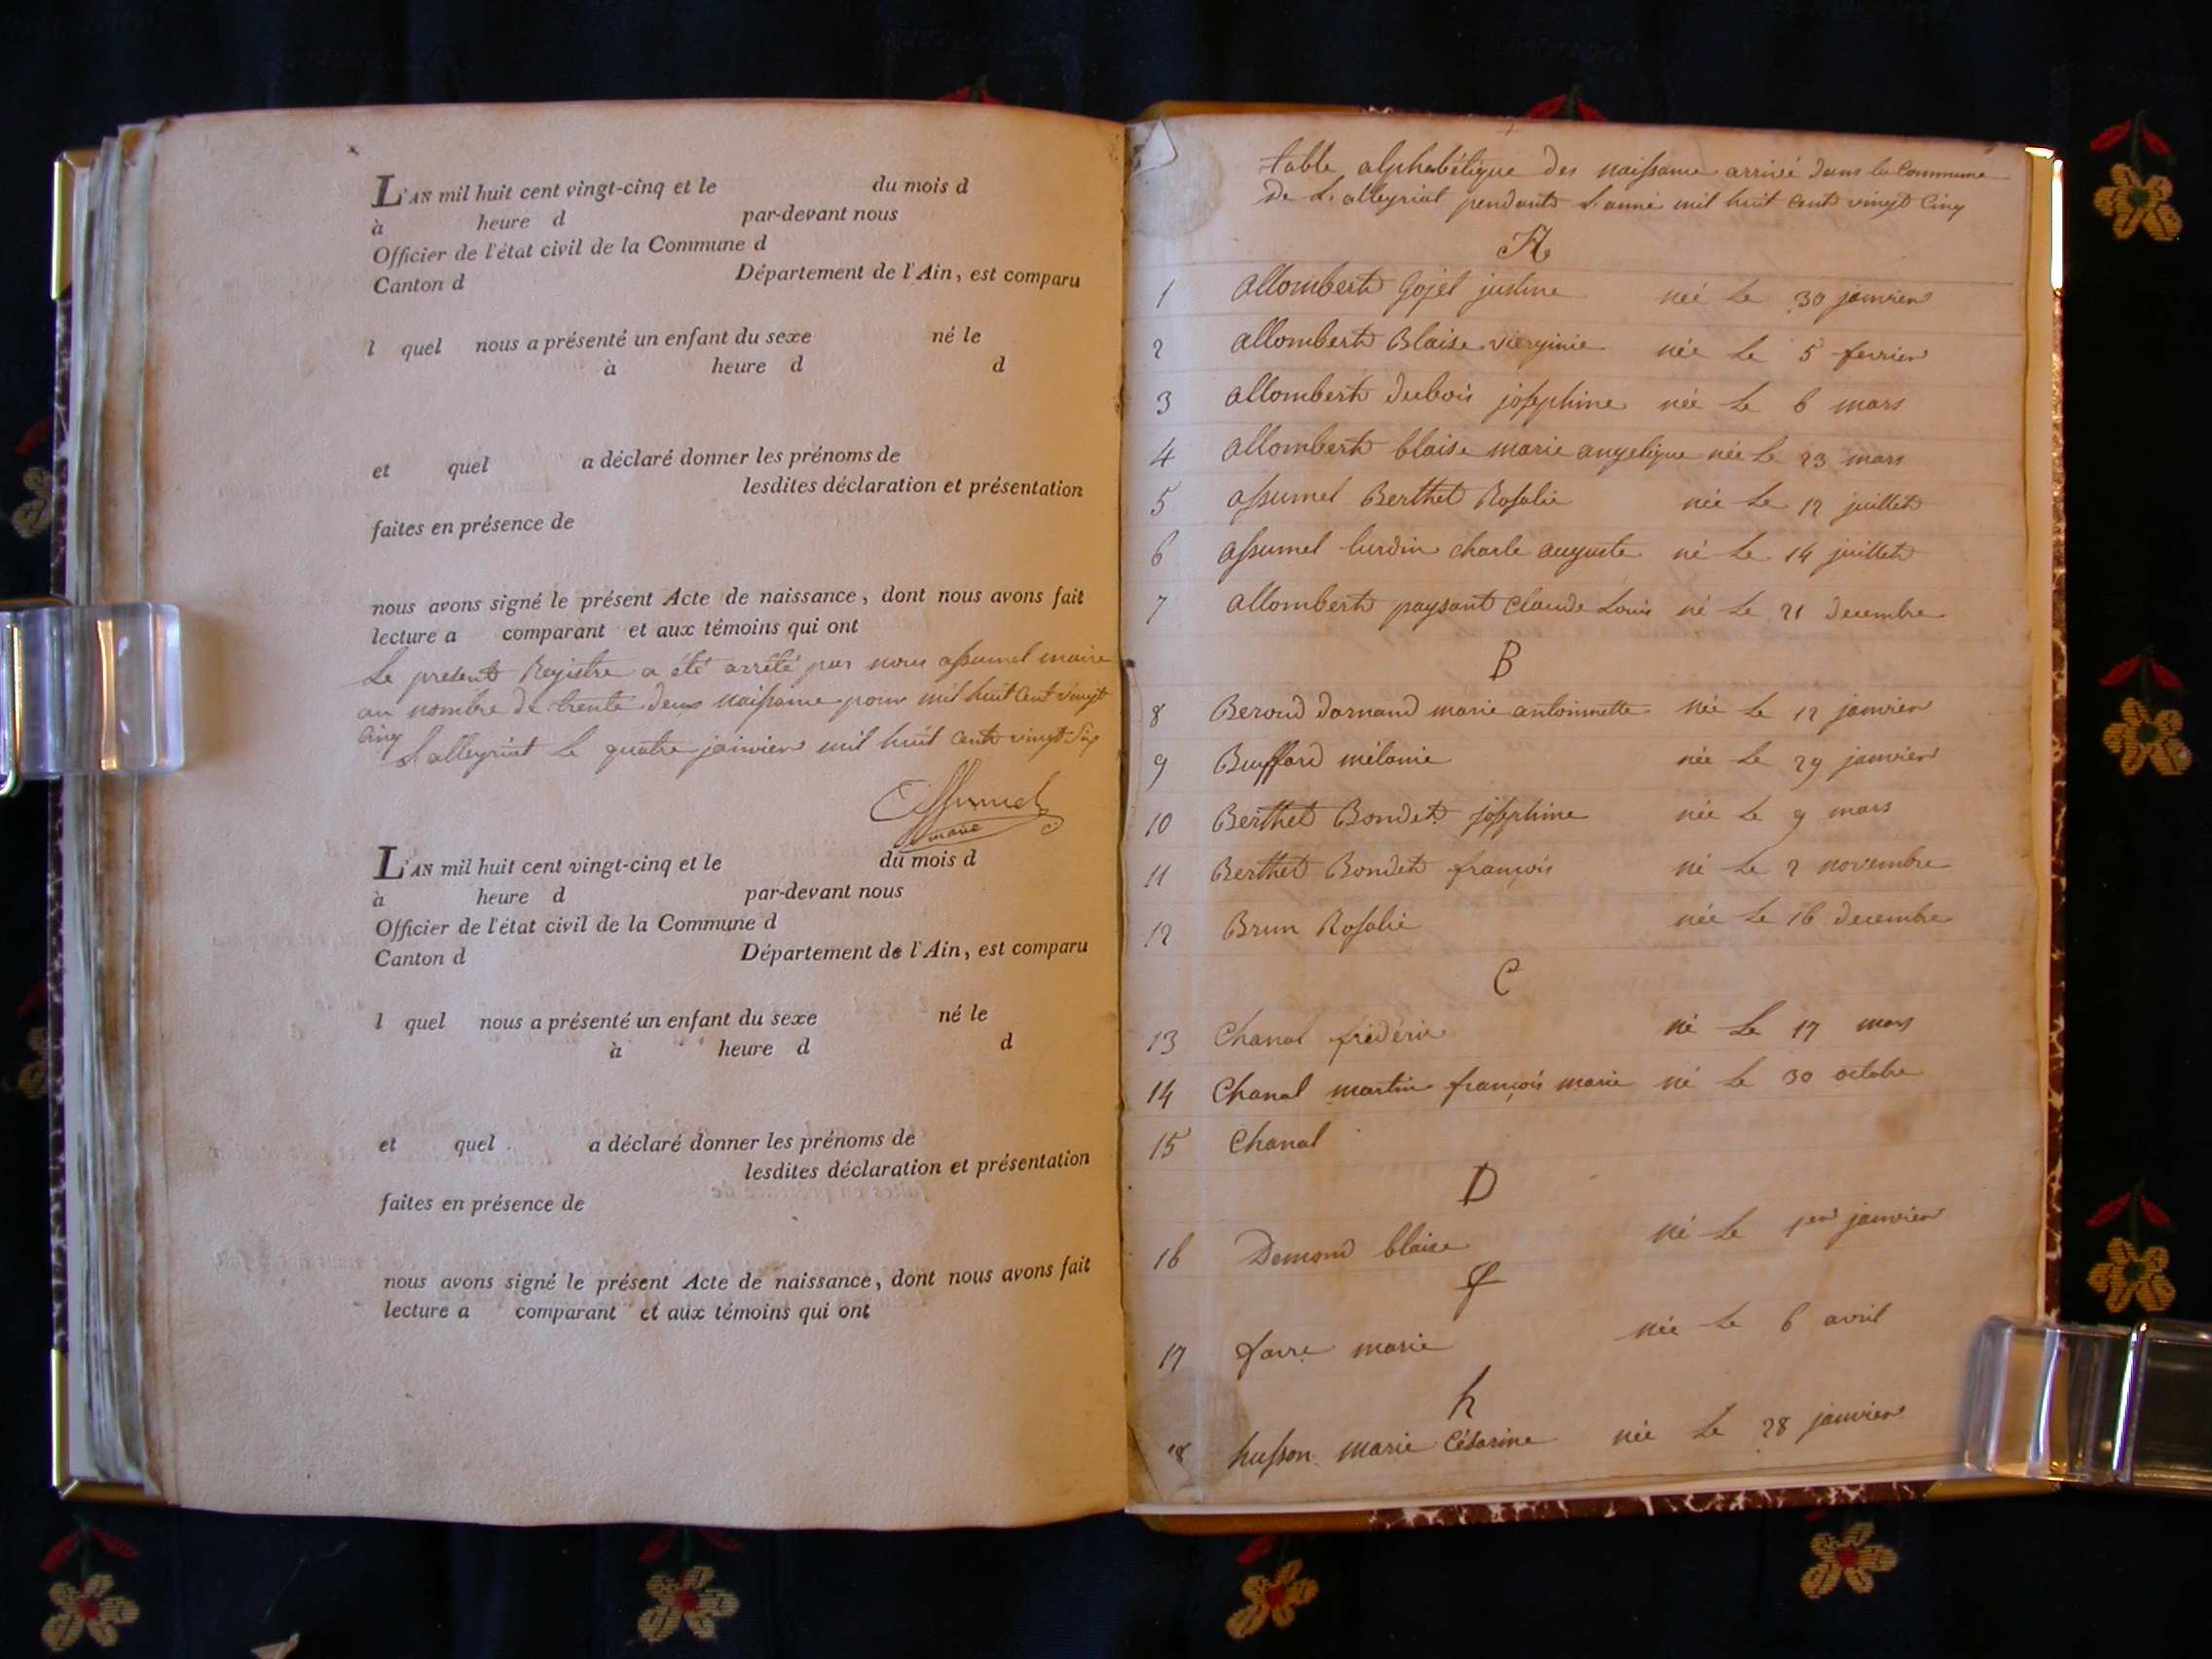 L'AN mil huit cent vingt-cinq et le du mois d
à heure d par-devant nous
Officier de l'état civil de la Commune d
Canton d Département de l'Ain, est comparu
l quel nous a présenté un enfant du sexe né le
à heure d d
et quel a déclaré donner les prénoms de
lesdites déclaration et présentation
faites en présence de
nous avons signé le présent Acte de naissance, dont nous avons fait
lecture a comparant et aux témoins qui ont
Le present Registre a été arrêté par nous assumel maire
au nombre de trente deux naissance pour mil huit Cent vingt
Cinq
L'alleyriat Le quatre janvier mil huit Cent vingt Six
Assumel
maire
L'AN mil huit cent vingt-cinq et le du mois d
à heure d par-devant nous
Officier de l'état civil de la Commune d
Canton d Département de l'Ain, est comparu
l quel nous a présenté un enfant du sexe né le
à heure d d
et quel a déclaré donner les prénoms de
lesdites déclaration et présentation
faites en présence de
nous avons signé le présent Acte de naissance, dont nous avons fait
lecture a comparant et aux témoins qui ont
table alphabétique des naissance arrivé dans la Commune
De L'alleyriat pendant L'anné mil huit Cent vingt Cinq
A
1 allombert Gojet justine née Le 30 janvier
2 allombert Blaise vierginie née Le 5 fevrier
3 allombert dubois josephine née Le 6 mars
4 allombert blaise marie angelique née Le 23 mars
5 assumel Berthet Rosalie née Le 12 juillet
6 assumel lurdin charle auguste né Le 14 juillet
7 allombert paysant Claude Louis né Le 21 decembre
B
8 Beroud darnand marie antoinnette née Le 12 janvier
9 Buffard mélanie née Le 29 janvier
10 Berthet Bondet josephine née Le 9 mars
11 Berthet Bondet françois né Le 2 novembre
12 Brun Rosalie née Le 16 decembre
C
13 Chanal frédéric né Le 17 mars
14 Chanal martin françois marie né Le 30 octobre
15 Chanal
D
16 Demond blaise né Le 1er janvier
f
17 favre marie née Le 6 avril
h
18 husson marie Césarine née Le 28 janvier